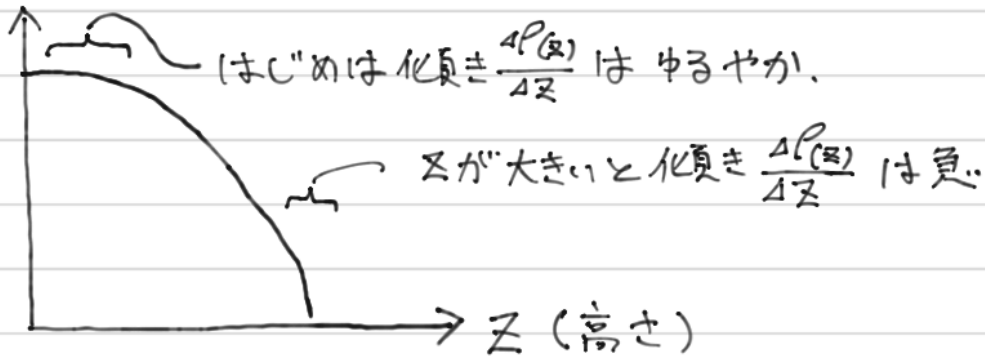 はじめは傾き Δρ(z)/Δz は ゆるやか.
zが大きいと傾き Δρ(z)/Δz は急.
z (高さ)